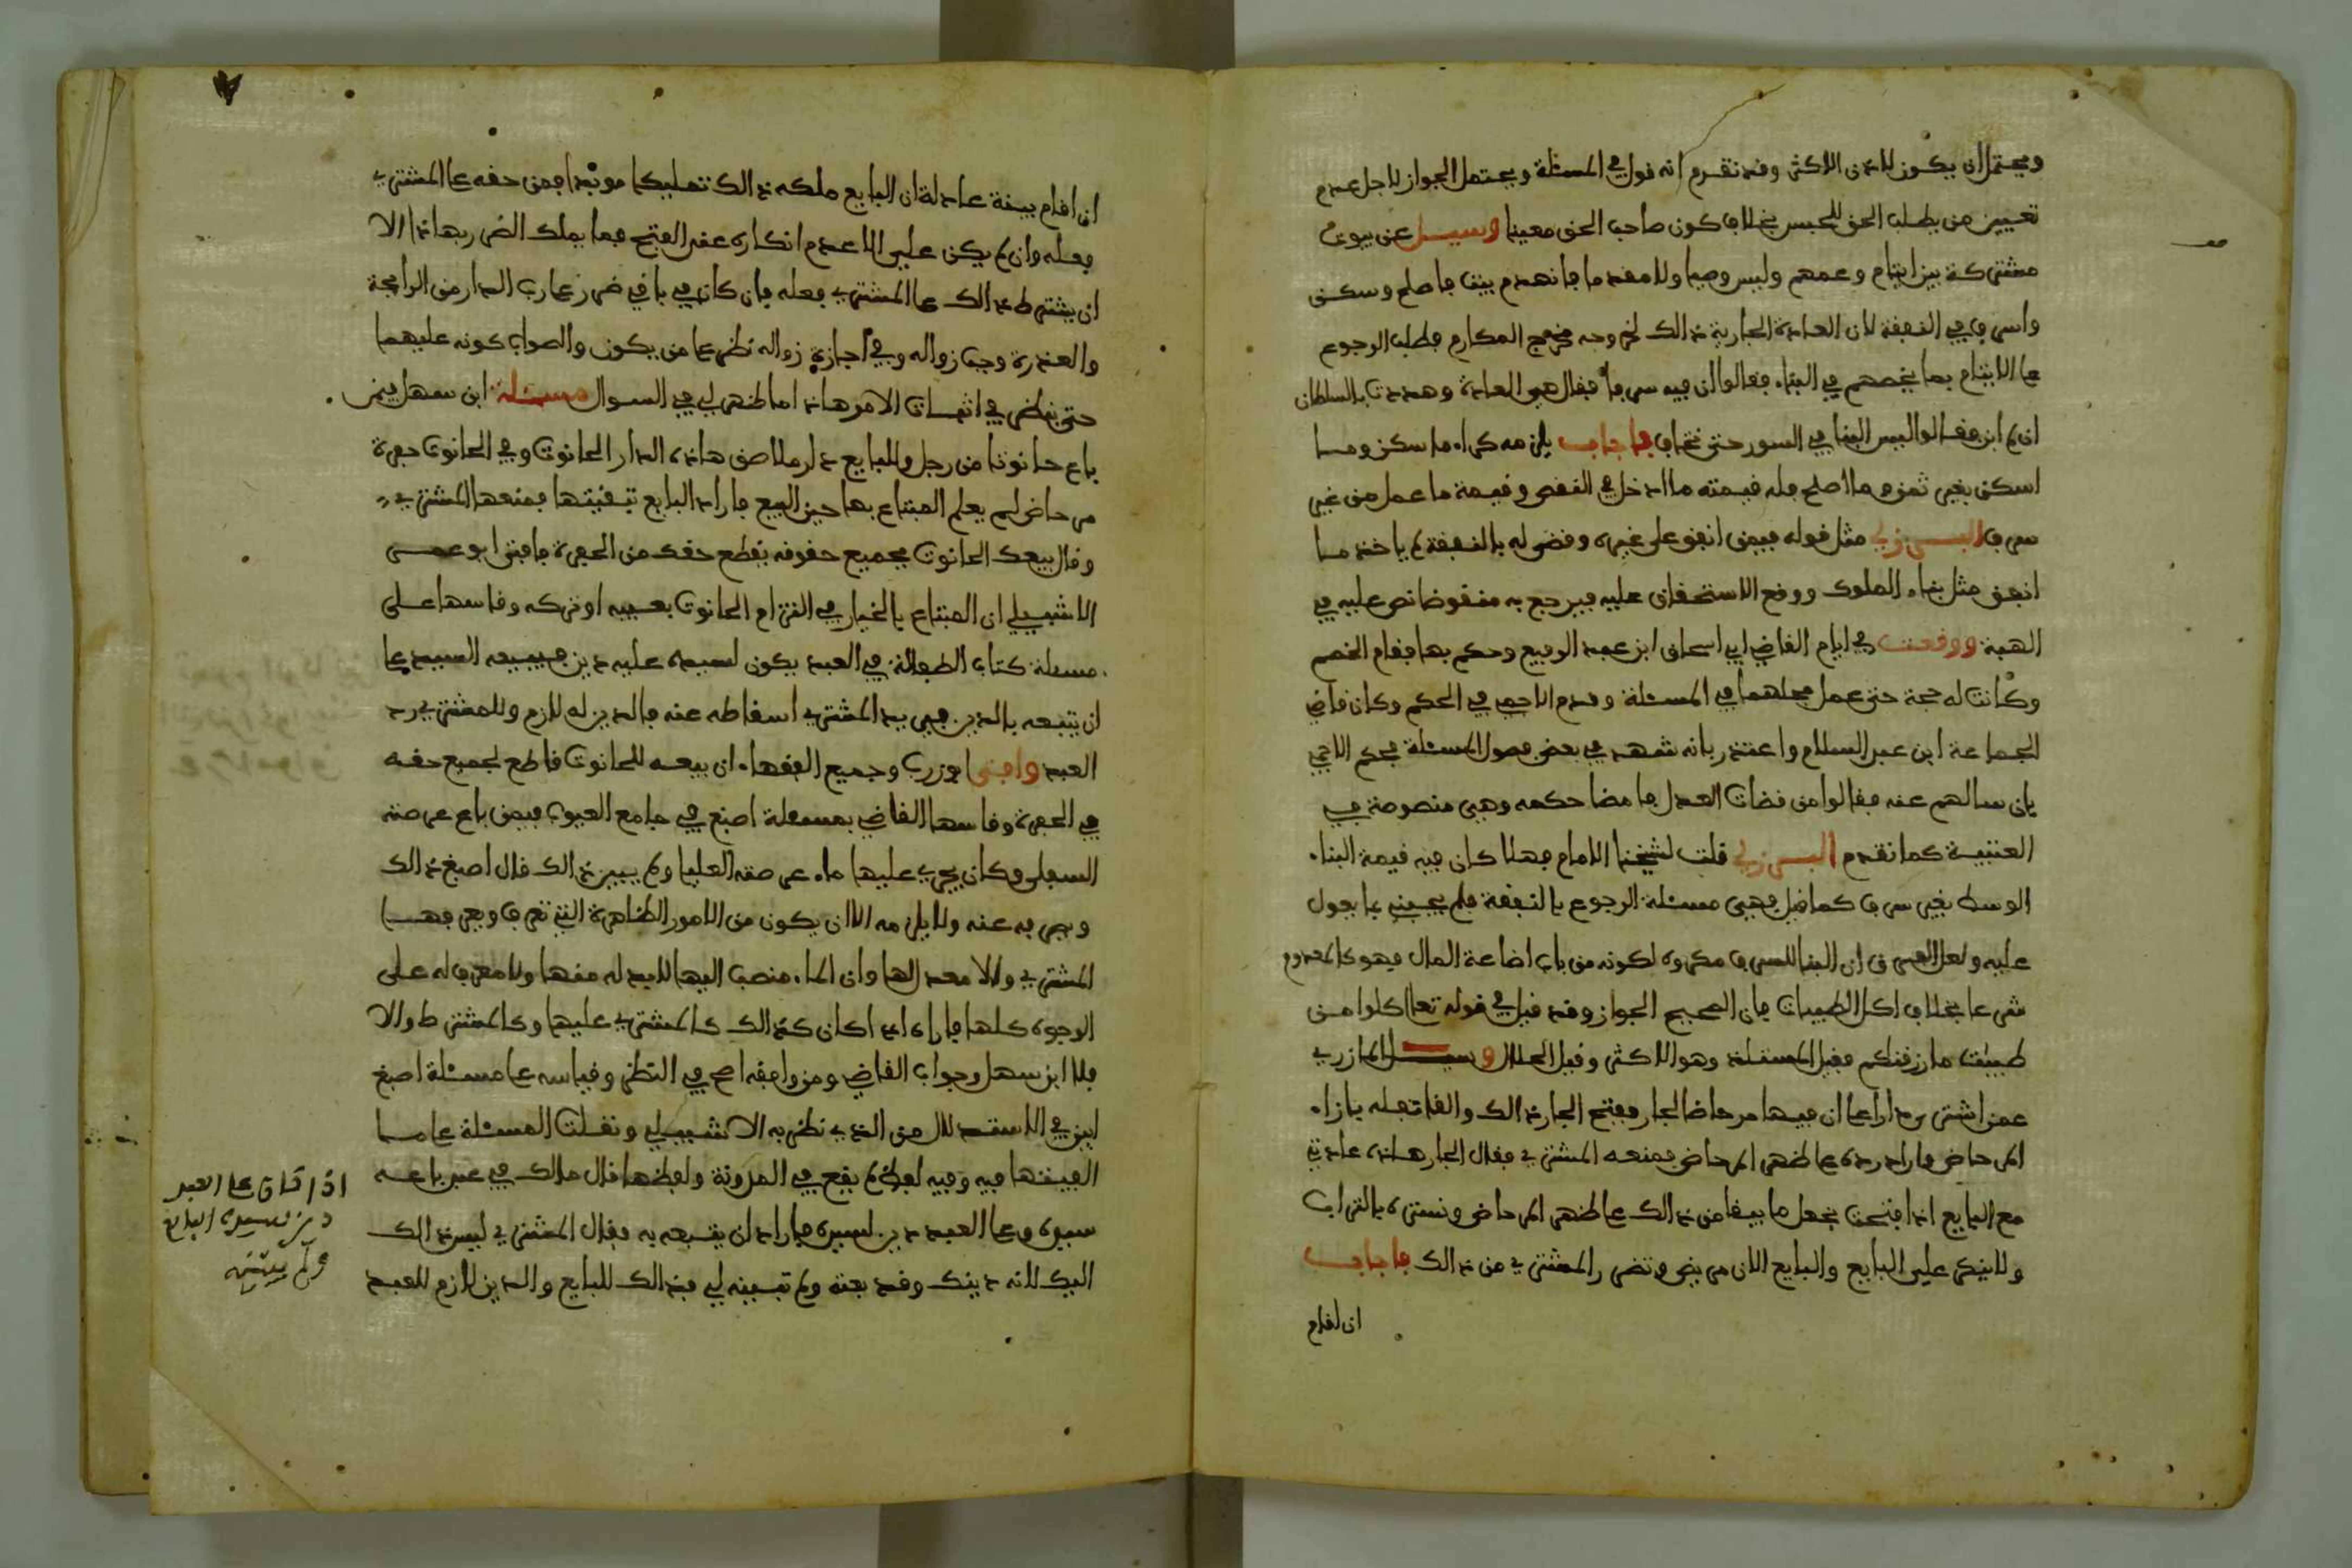 ويحتمل ان يكون لاذن الاكثر وقد تقدم انه قول في المسئلة ويحتمل الجواز لاجل عدم
تعيين من يطلب الحق للحبس بخلاف كون صاحب الحق معينا وسيل عن بيوت
مشتركة بين ايتام وعمهم وليس وصيا ولا مقدما فانهدم بيت فاصلح وسكن
واسرف في النفقة لان العادة الجارية ذالك لخروجه مخرج المكارم فطلب الرجوع
على الايتام بما يخصهم في البناء فقالوا ان فيه سرفا فقال هي العادة وهددت بالسلطان
ان لم ابن فقالوا ليس البنا في السور حتى تخاف فاجاب يلزمه كراء ما سكن وما
اسكن بغير ثمن وما اصلح فله قيمته ما ادخل في النقص وقيمة ما عمل من غير
سرف البرزلي مثل قوله فيمن انفق على غيره وقضي له بالنفقة لم ياخذ ما
انفق مثل بناء الملوك ووقع الاستحقاق عليه فيرجع به منقوضا نص عليه في
الهبة ووقعت في ايام القاضي ابي اسحاق ابن عبد الرفيع وحكم بها فقام الخصم
وكانت له حجة حتى عمل مجلسها في المسئلة وقدم الاجمي في الحكم وكان قاضي
الجماعة ابن عبد السلام واعتذر بانه شهد في بعض فصول المسئلة فحكم الاجمي
بان سالهم عنه فقالوا من قضات العدل فامضا حكمه وهي منصوصة في
العتبية كما تقدم البرزلي قلت لشيخنا الامام فهلا كان فيه قيمة البناء
الوسط بغير سرف كما قيل فهي مسئلة الرجوع بالنفقة فلم يجبني بما يعول
عليه ولعل الفرق ان البنا للسرف مكروه لكونه من باب اضاعة المال فهو كالمعدوم
شرعا بخلاف اكل الطيبات فان الصحيح الجواز وقد قيل في قوله تعالى كلوا من
طيبت ما رزقنكم فقيل المستلذ وهو الاكثر وقيل الحلال وسيل المازري
عمن اشترى دارا على ان فيها مرحاضا لجار ففتح الجار ذالك والقا تفله بازاء
المرحاض واراد رده على ظهر المرحاض فمنعه المشتري فقال الجار هاذه عادتي
مع البايع اذا فتحت نجعل ما يبقا من ذالك على ظهر المرحاض ونستره بالتراب
ولا ينكر علي البايع والبايع الان مريض وتضرر المشتري من ذالك فاجاب
ان اقام
ان اقام بينة عادلة ان البايع ملكه ذالك تمليكا مؤبدا فمن حقه على المشتري
فعله وان لم يكن علي الا عدم انكاره عقد الفتح فما يملك الضرر بهاذا الا
ان يشترط ذالك على المشتري فعله فان كان في باقي ضرر على رب الدار من الرائحة
والعذرة وجب زواله وفي اجازة زواله نظر على من يكون والصواب كونه عليهما
حتى ينظر في اثبات الامر هاذا ما ظهر لي في السوال مسئلة ابن سهل فيمن
باع حانوتا من رجل وللبايع دار ملاصق هاذه الدار الحانوت وفي الحانوت حفرة
مرحاض لم يعلم المبتاع بها حين البيع فاراد البايع تنقيتها فمنعها المشتري
وقال بيعك الحانوت بجميع حقوقه يقطع حقك من الحفرة فافتى ابو عمر
الاشبيلي ان المبتاع بالخيار في التزام الحانوت بعيبه او تركه وقاسها على
مسئلة كتاب الطوالة في العبد يكون لسيده عليه دين فيبيعه السيد على
ان يتبعه بالدين فيريد المشتري اسقاطه عنه فالدين له لازم وللمشتري رد
العبد وافتى ابو زرب وجميع الفقهاء ان بيعه للحانوت قاطع لجميع حقه
في الحفرة وقاسها القاضي بمسئلة اصبغ في جامع العيوب فيمن باع عرصته
السفلى وكان يجري عليها ماء عرصته العليا ولم يبين ذالك قال اصبغ ذالك
ويصرفه عنه ولا يلزمه الا ان يكون من الامور الظاهرة التي تعرف ويعرفها
المشتري ولا معدلها وان الماء منصب اليها لا بد له منها ولا مصرف له على
الوجوه كلها فاراه اذا كان كذالك كالمشتري عليها وكالمشترط والا
فلا ابن سهل وجواب القاضي ومن وافقه اصح في النظر وقياسه على مسئلة اصبغ
ابين في الاستدلال من الذي نظر به الاشبيلي ونقلت المسئلة على ما
الفيتها فيه وفيه لفظ لم يقع في المدونة ولفظها قال مالك في عبد باعه
سيده وعلى العبد دين لسيده فاراد ان يتبعه به فقال المشتري ليس ذالك
اليك لانه دينك وقد بعته ولم تبينه لي فذالك للبايع والدين لازم للعبد
اذا كان على العبد
دين لسيده البايع
ولم يبينه